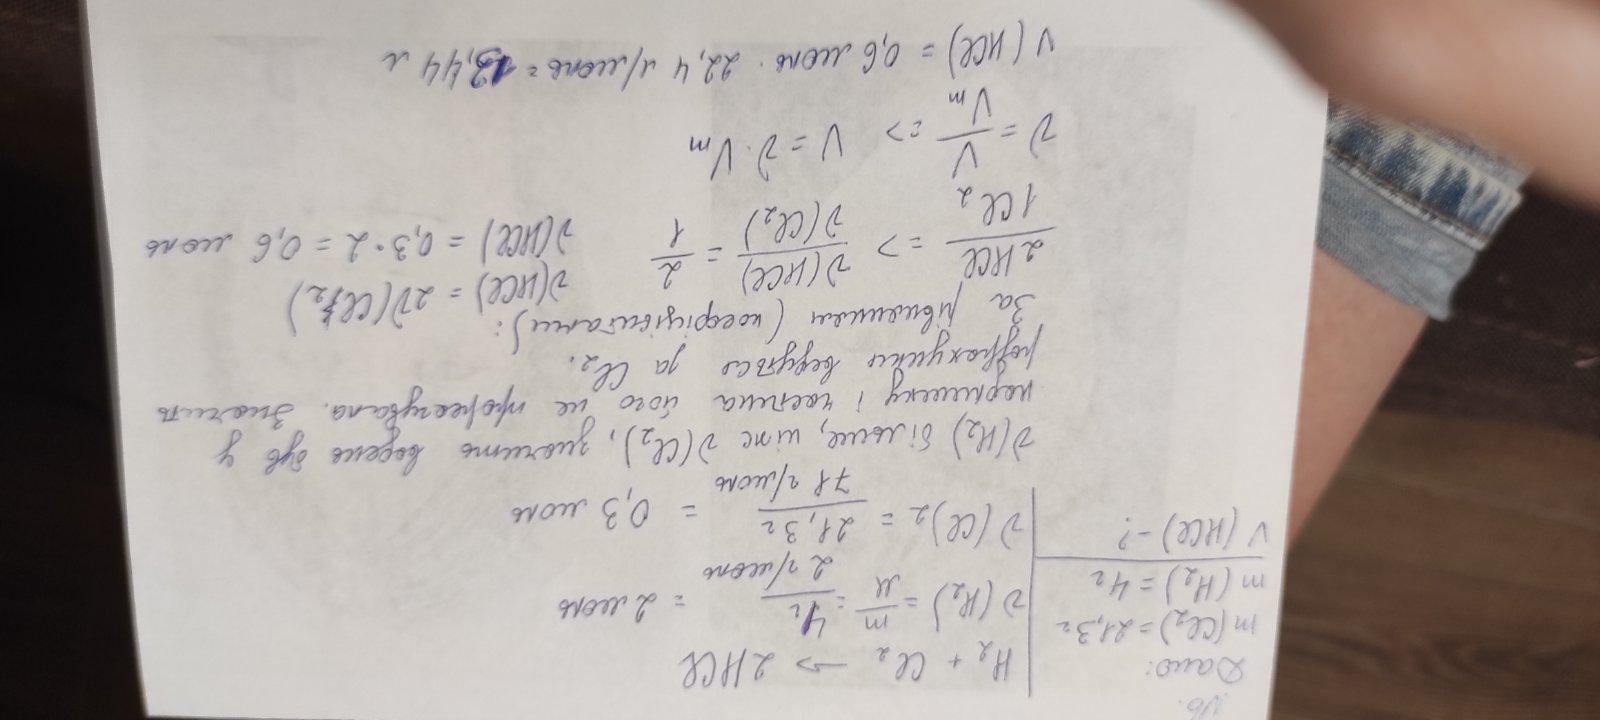 №6.
Дано:
m(Cl₂)=21,3г
m(H₂)=4г
V(HCl)-?
H₂ + Cl₂ → 2HCl
ν(H₂) = m/M = 4г/2 г/моль = 2 моль
ν(Cl)₂ = 21,3г/71 г/моль = 0,3 моль
ν(H₂) більше, ніж ν(Cl₂), значить водень був у
надлишку і частина його не прореагувала. Значить
розрахунки ведуться за Cl₂.
За рівнянням (коефіцієнтами):
2HCl/1Cl₂ => ν(HCl)/ν(Cl₂) = 2/1
ν(HCl) = 2ν(Cl₂)
ν(HCl) = 0,3·2 = 0,6 моль
ν = V/Vm => V = ν·Vm
V(HCl) = 0,6 моль · 22,4 л/моль = 13,44 л